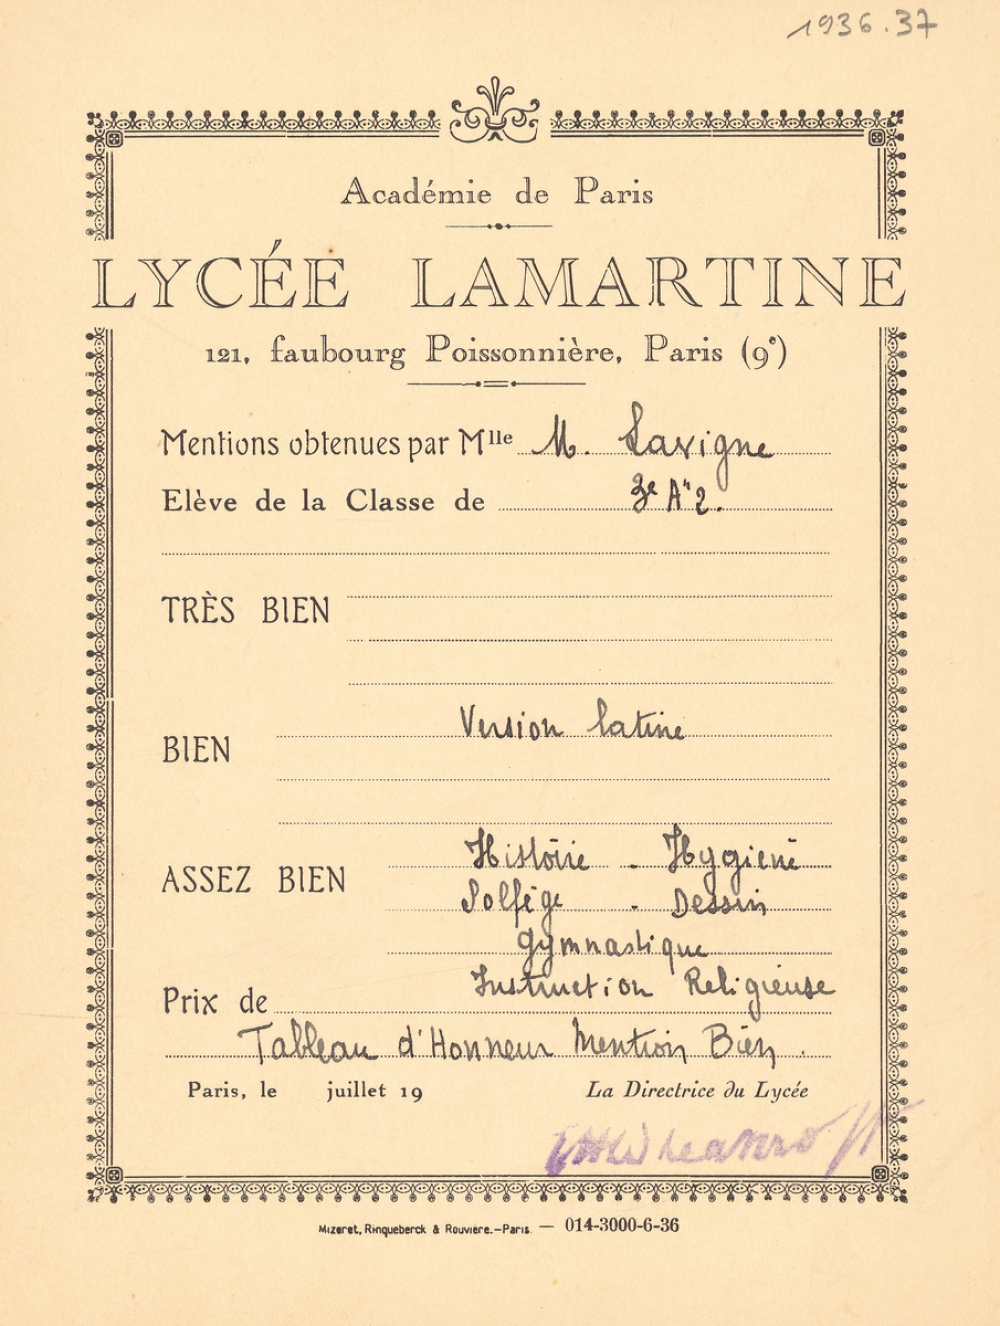 1936.37
Académie de Paris
LYCÉE LAMARTINE
121, faubourg Poissonnière, Paris (9e)
Mentions obtenues par Mlle M. Lavigne
Elève de la Classe de 3e A"2.
TRÈS BIEN
Version latine
BIEN
Histoire - Hygiène
ASSEZ BIEN
Solfège - Dessin
Gymnastique
Instruction Religieuse
Prix de
Tableau d'Honneur Mention Bien.
Paris, le juillet 19 La Directrice du Lycée
Mizeret, Rinqueberck & Rouvière.-Paris. — 014-3000-6-36